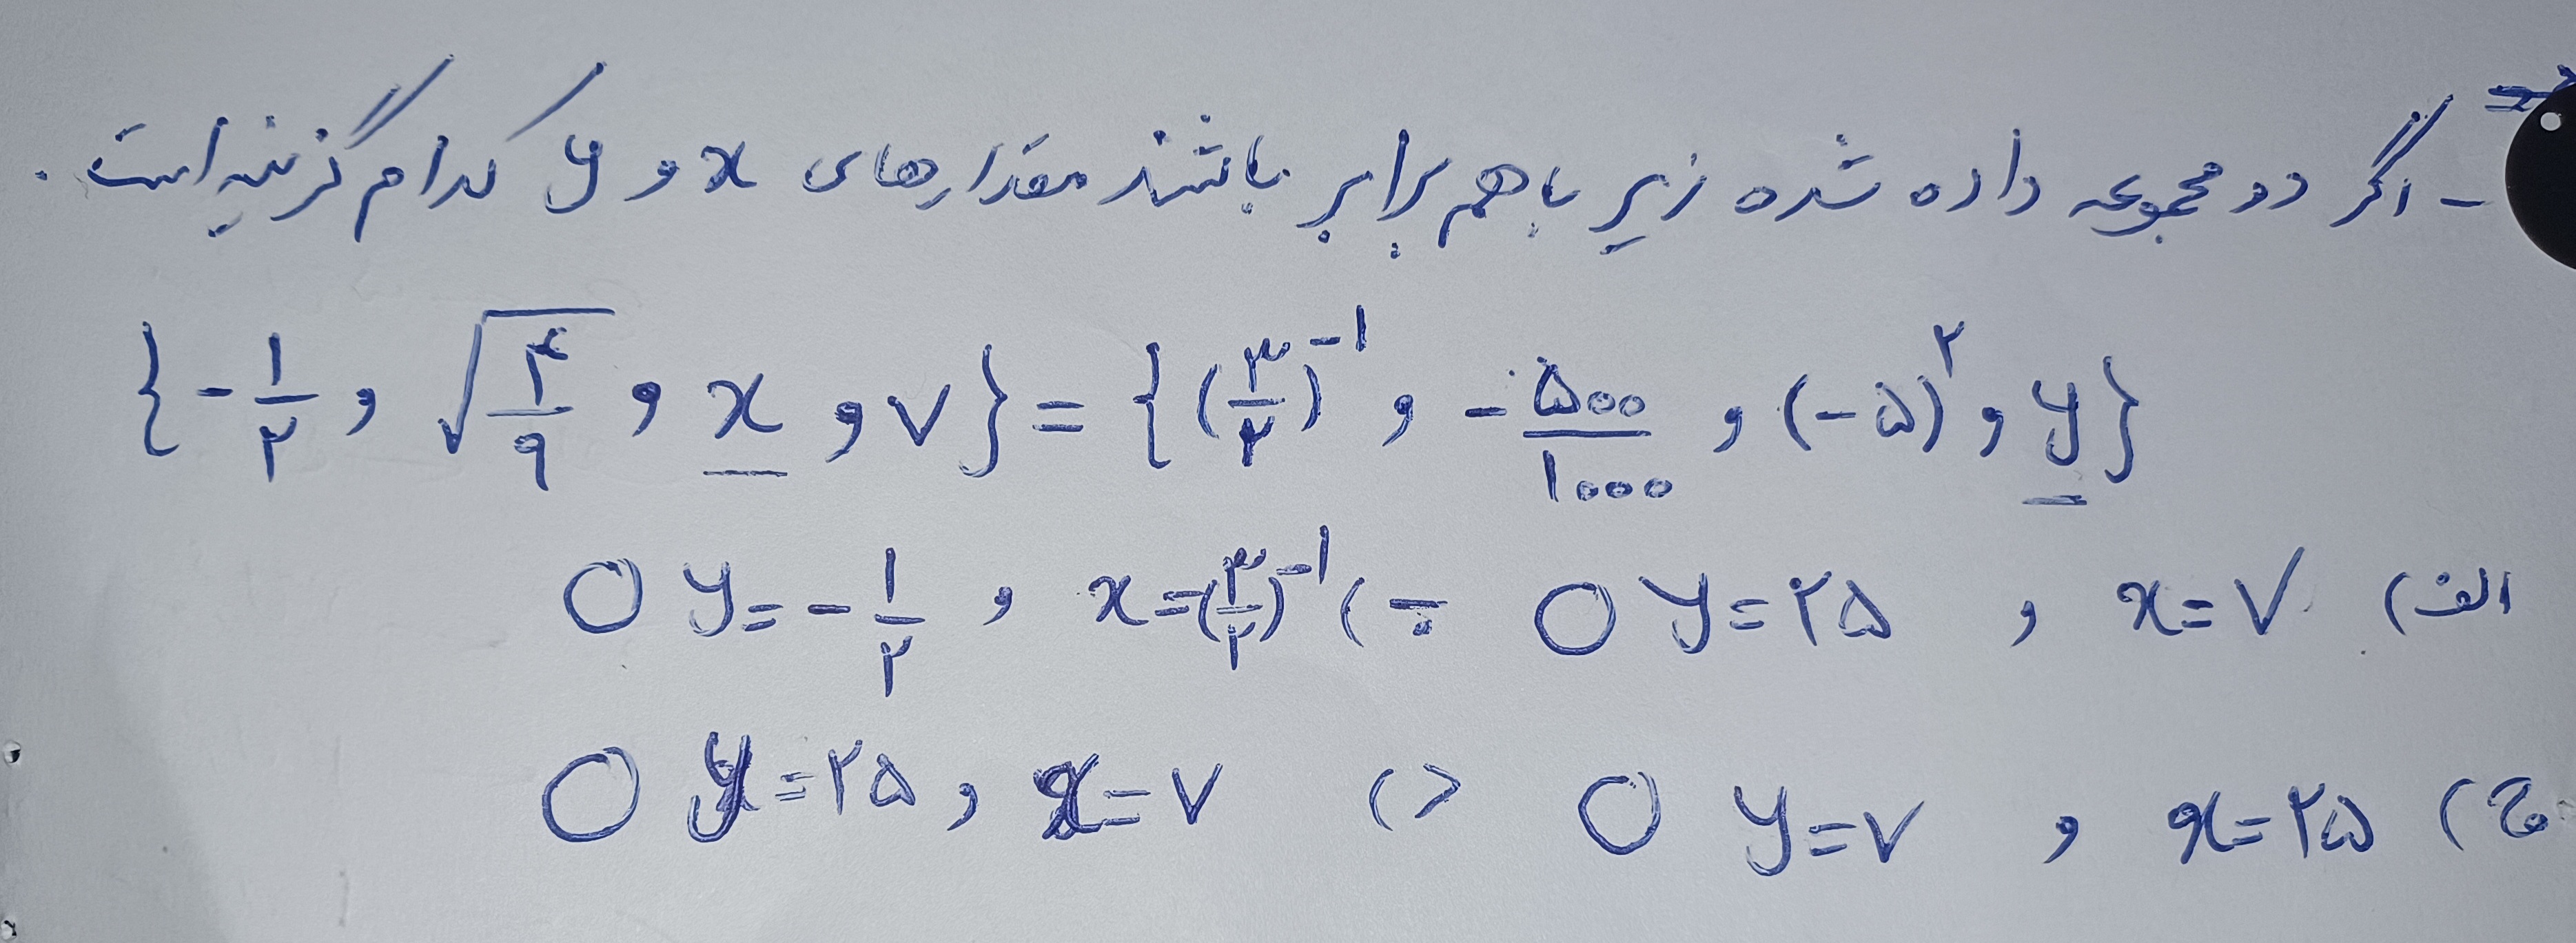 - اگر دو مجموعه داده شده زیر با هم برابر باشند مقدارهای x و y کدام گزینه است .
{-۱/۲ و √(۴/۹) و x و ۷} = {(۳/۲)^-۱ و -۵۰۰/۱۰۰۰ و (-۵)^۲ و y}
الف) x=۷ و y=۲۵ ○ ب) x=(۳/۲)^-۱ و y=-۱/۲ ○
ج) x=۲۵ و y=۷ ○ د) x=۷ و y=۲۵ ○